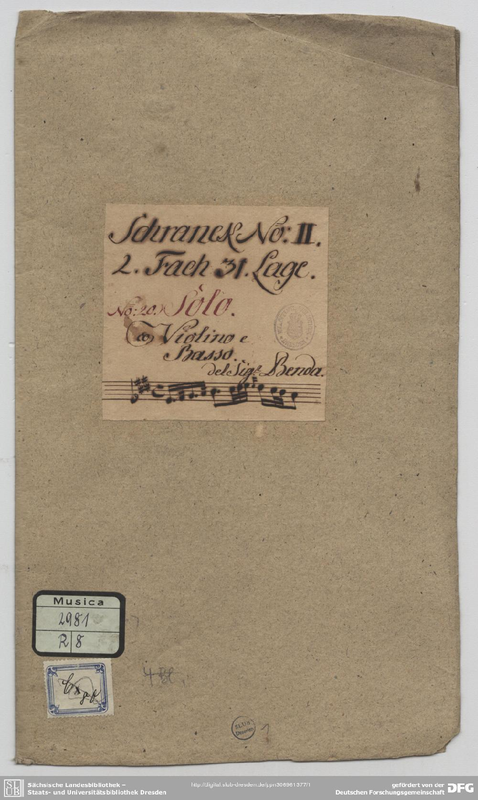 Schranck No: II.
2. Fach 31. Lage.
No: 20. Solo.
a Violino e
Basso.
del Sig.r Benda.
Musica
2981
R 8
1
Sächsische Landesbibliothek –
Staats- und Universitätsbibliothek Dresden
http://digital.slub-dresden.de/ppn308961377/1
gefördert von der
Deutschen Forschungsgemeinschaft
DFG